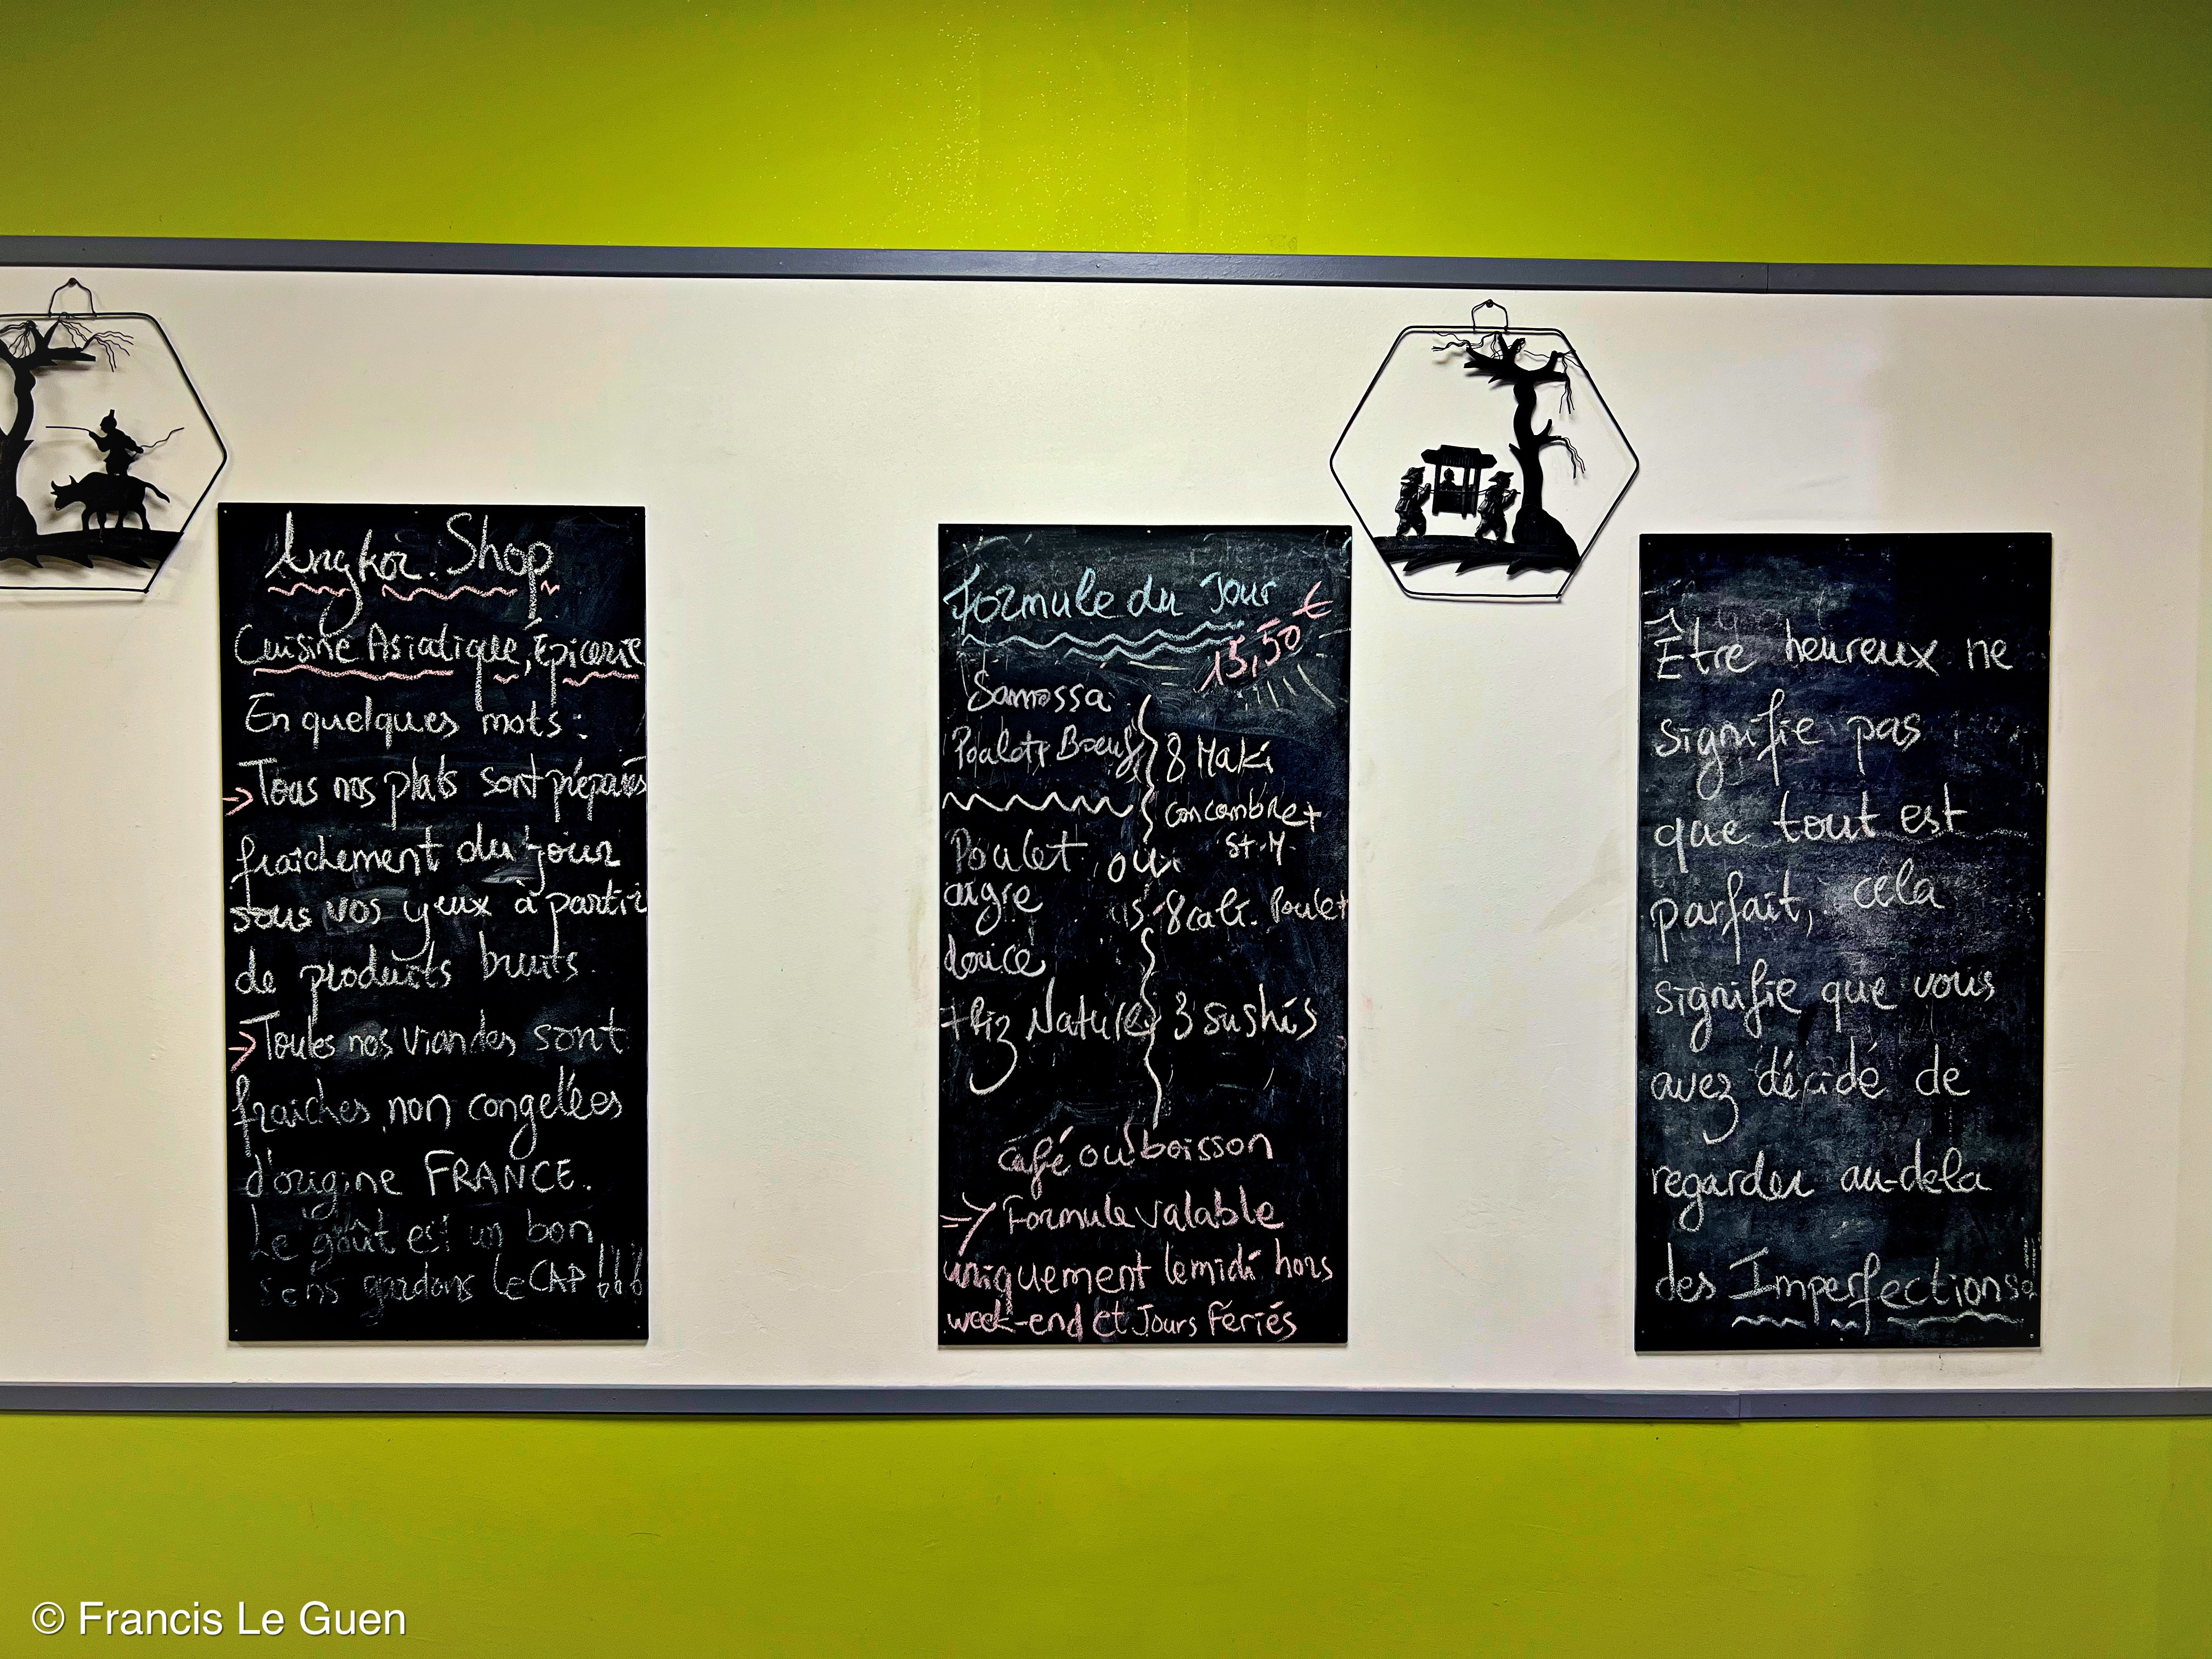 Angkor. Shop
Cuisine Asiatique, Épicerie
En quelques mots:
→ Tous nos plats sont préparés
fraîchement du jour
sous vos yeux à partir
de produits bruts.
→ Toutes nos viandes sont
fraiches, non congelées
d'origine FRANCE.
Le goût est un bon
sens gardons le CAP !!!
Formule du Jour
15,50 €
Samossa
Poulet, Boeuf
Poulet
aigre
douce
+ Riz Nature
ou
8 Maki
Concombre +
St-M.
8 cali. Poulet
3 sushis
café ou boisson
=> Formule valable
uniquement le midi hors
week-end et Jours Fériés
Être heureux ne
signifie pas
que tout est
parfait, cela
signifie que vous
avez décidé de
regarder au-dela
des Imperfections
© Francis Le Guen